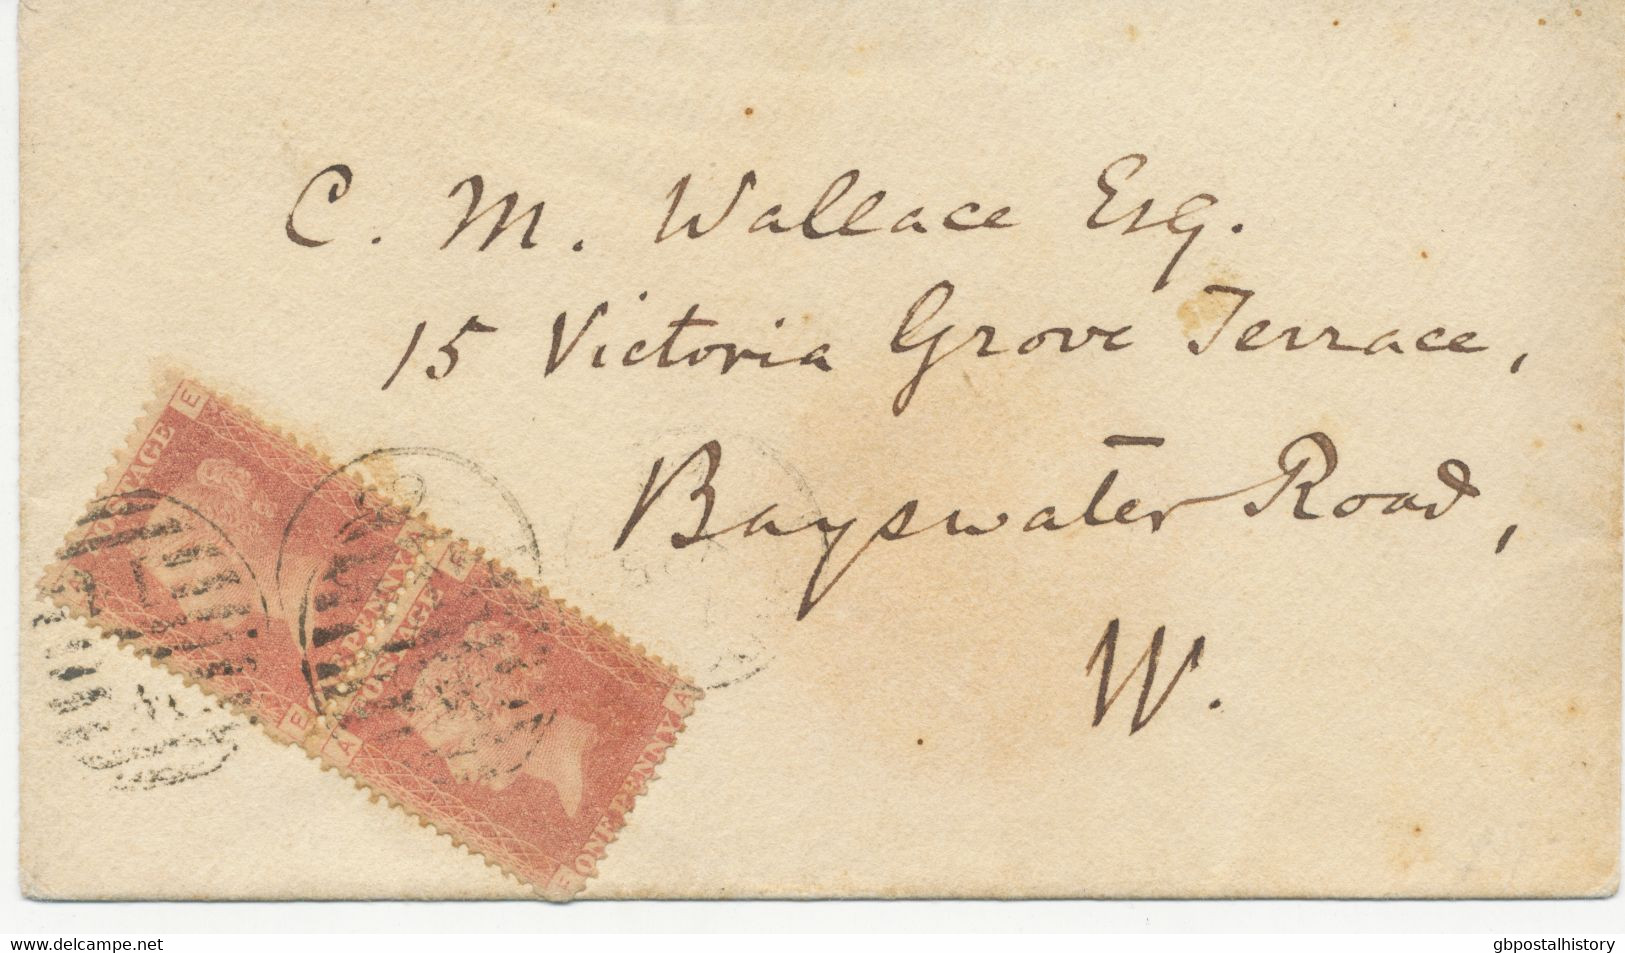 C. M. Wallace Esq.
15 Victoria Grove Terrace,
Bayswater Road,
W.
POSTAGE
ONE PENNY
POSTAGE
ONE PENNY
www.delcampe.net
gbpostalhistory